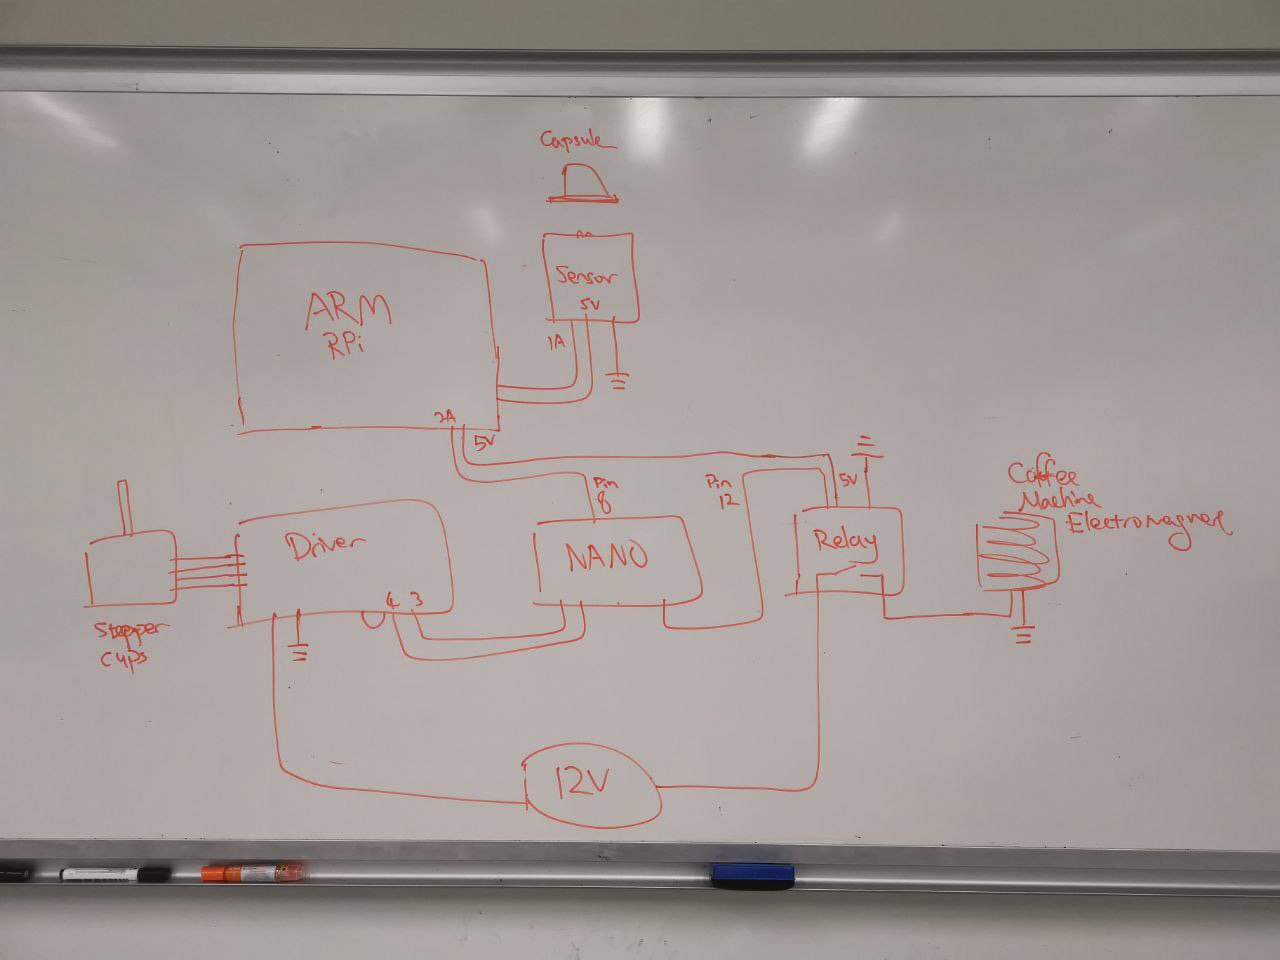 Capsule
Sensor
5V
1A
ARM
RPi
2A
5V
Pin
8
Pin
12
5V
Coffee
Machine
Electromagnet
Driver
4 3
NANO
Relay
Stepper
Cups
12V